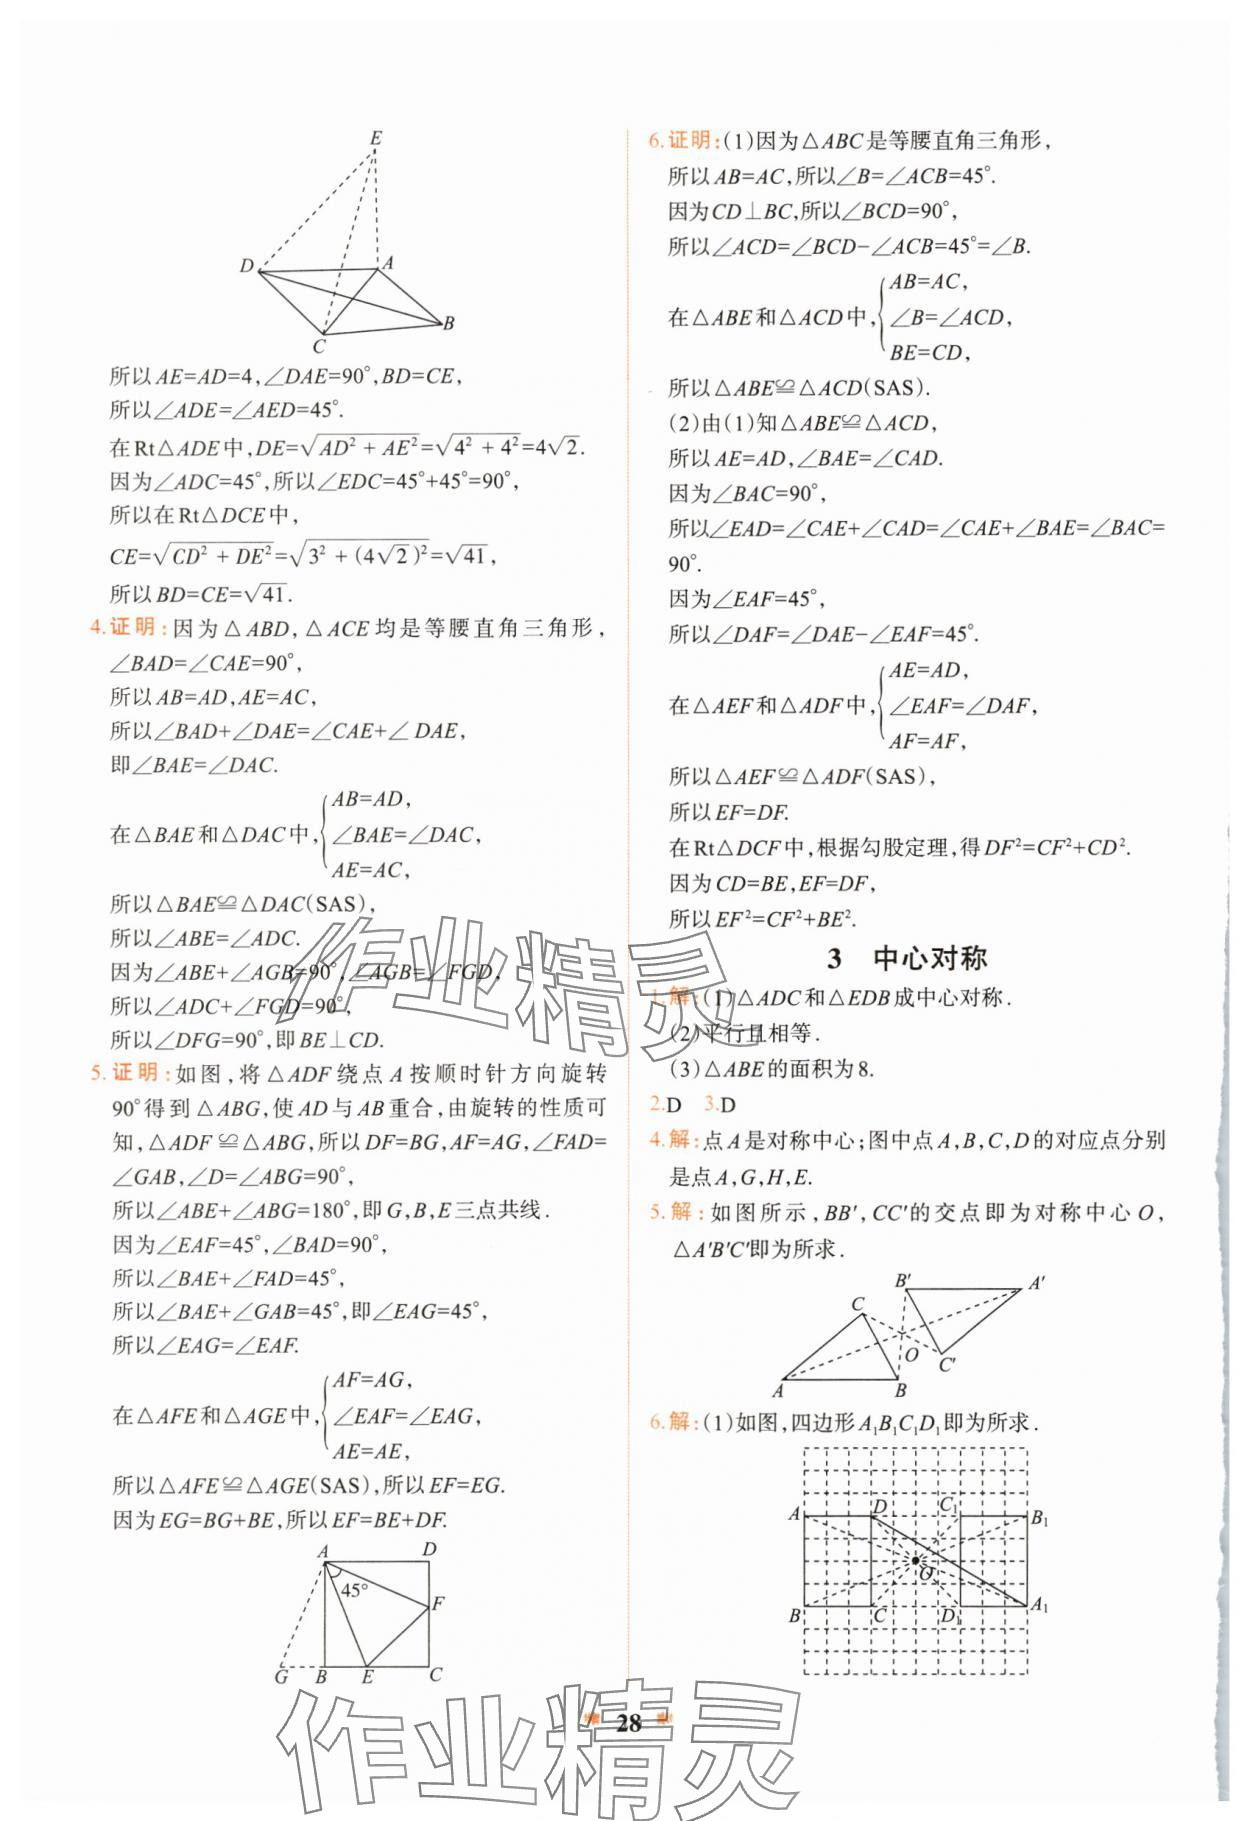 E
D
A
B
C
所以AE=AD=4,∠DAE=90°,BD=CE,
所以∠ADE=∠AED=45°.
在Rt△ADE中,DE=√(AD²+AE²)=√(4²+4²)=4√2.
因为∠ADC=45°,所以∠EDC=45°+45°=90°,
所以在Rt△DCE中,
CE=√(CD²+DE²)=√(3²+(4√2)²)=√41,
所以BD=CE=√41.
4.证明:因为△ABD,△ACE均是等腰直角三角形,
∠BAD=∠CAE=90°,
所以AB=AD,AE=AC,
所以∠BAD+∠DAE=∠CAE+∠DAE,
即∠BAE=∠DAC.
在△BAE和△DAC中,
AB=AD,
∠BAE=∠DAC,
AE=AC,
所以△BAE≌△DAC(SAS),
所以∠ABE=∠ADC.
因为∠ABE+∠AGB=90°,∠AGB=∠FGD,
所以∠ADC+∠FGD=90°,
所以∠DFG=90°,即BE⊥CD.
5.证明:如图,将△ADF绕点A按顺时针方向旋转
90°得到△ABG,使AD与AB重合,由旋转的性质可
知,△ADF≌△ABG,所以DF=BG,AF=AG,∠FAD=
∠GAB,∠D=∠ABG=90°,
所以∠ABE+∠ABG=180°,即G,B,E三点共线.
因为∠EAF=45°,∠BAD=90°,
所以∠BAE+∠FAD=45°,
所以∠BAE+∠GAB=45°,即∠EAG=45°,
所以∠EAG=∠EAF.
在△AFE和△AGE中,
AF=AG,
∠EAF=∠EAG,
AE=AE,
所以△AFE≌△AGE(SAS),所以EF=EG.
因为EG=BG+BE,所以EF=BE+DF.
A D
45°
F
G B E C
6.证明:(1)因为△ABC是等腰直角三角形,
所以AB=AC,所以∠B=∠ACB=45°.
因为CD⊥BC,所以∠BCD=90°,
所以∠ACD=∠BCD-∠ACB=45°=∠B.
在△ABE和△ACD中,
AB=AC,
∠B=∠ACD,
BE=CD,
所以△ABE≌△ACD(SAS).
(2)由(1)知△ABE≌△ACD,
所以AE=AD,∠BAE=∠CAD.
因为∠BAC=90°,
所以∠EAD=∠CAE+∠CAD=∠CAE+∠BAE=∠BAC=
90°.
因为∠EAF=45°,
所以∠DAF=∠DAE-∠EAF=45°.
在△AEF和△ADF中,
AE=AD,
∠EAF=∠DAF,
AF=AF,
所以△AEF≌△ADF(SAS),
所以EF=DF.
在Rt△DCF中,根据勾股定理,得DF²=CF²+CD².
因为CD=BE,EF=DF,
所以EF²=CF²+BE².
3 中心对称
1.解:(1)△ADC和△EDB成中心对称.
(2)平行且相等.
(3)△ABE的面积为8.
2.D 3.D
4.解:点A是对称中心;图中点A,B,C,D的对应点分别
是点A,G,H,E.
5.解:如图所示,BB′,CC′的交点即为对称中心O,
△A′B′C′即为所求.
B′ A′
C
O
C′
A B
6.解:(1)如图,四边形A₁B₁C₁D₁即为所求.
A D C₁ B₁
O
B C D₁ A₁
28
作业精灵
作业精灵